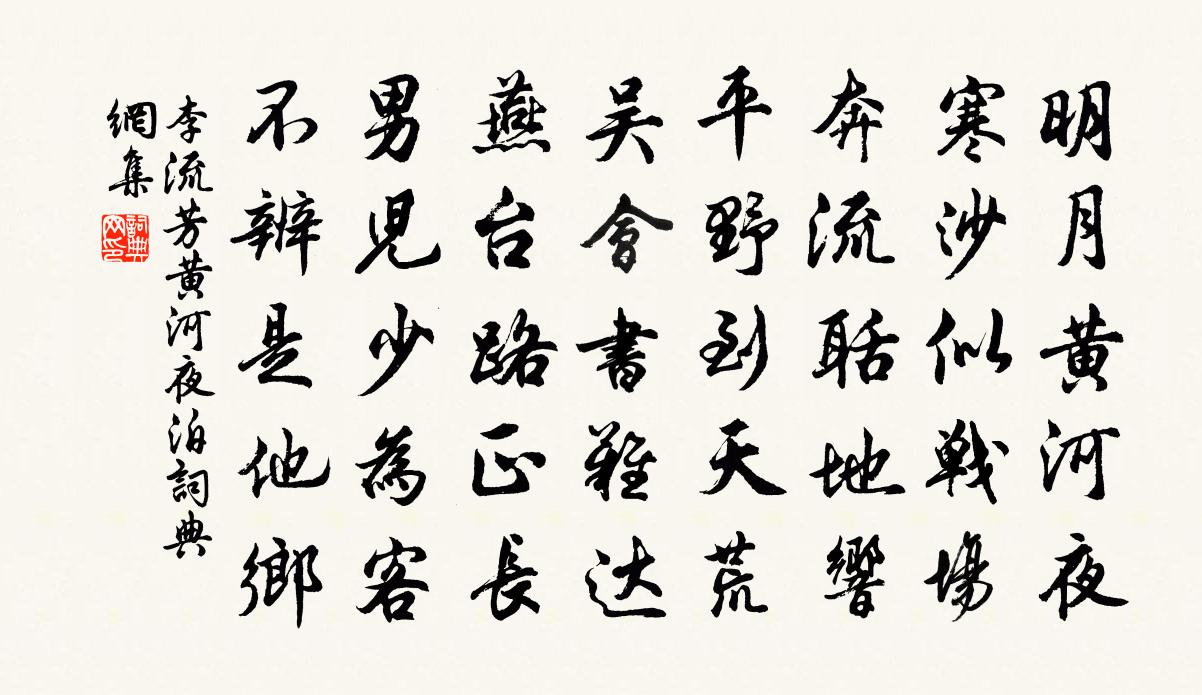 明月黄河夜
寒沙似戰場
奔流聒地響
平野到天荒
吴會書難达
燕台路正長
男兒少為客
不辨是他鄉
李流芳黄河夜泊詞典
網集
詞典网印